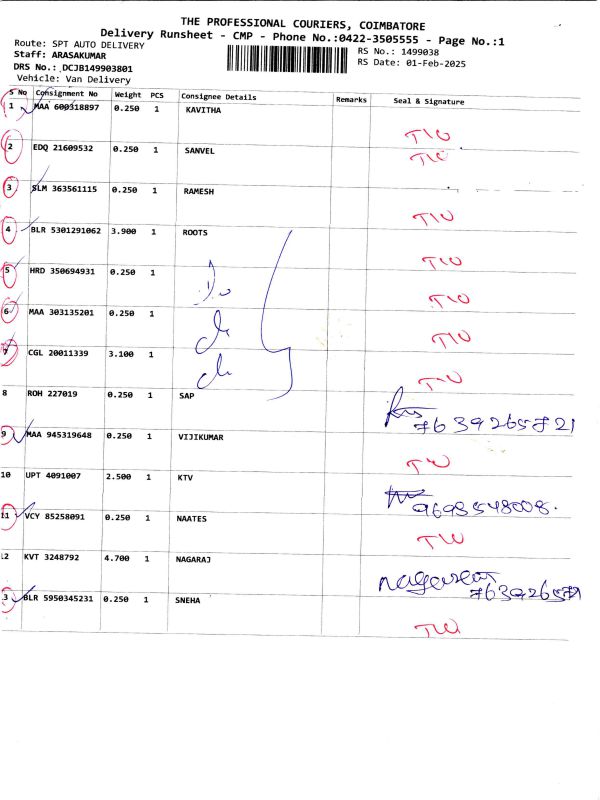 THE PROFESSIONAL COURIERS, COIMBATORE
Delivery Runsheet - CMP - Phone No.:0422-3505555 - Page No.:1
Route: SPT AUTO DELIVERY
Staff: ARASAKUMAR
DRS No.: DCJB149903801
Vehicle: Van Delivery
RS No.: 1499038
RS Date: 01-Feb-2025
S No Consignment No Weight PCS Consignee Details Remarks Seal & Signature
1 MAA 600318897 0.250 1 KAVITHA TW
2 EDQ 21609532 0.250 1 SANVEL TW
3 SLM 363561115 0.250 1 RAMESH TW
4 BLR 5301291062 3.900 1 ROOTS TW
5 HRD 350694931 0.250 1 TW
6 MAA 303135201 0.250 1 do TW
7 CGL 20011339 3.100 1 do TW
8 ROH 227019 0.250 1 SAP 7639265721
9 MAA 945319648 0.250 1 VIJIKUMAR TW
10 UPT 4091007 2.500 1 KTV 9698548008.
11 VCY 85258091 0.250 1 NAATES TW
12 KVT 3248792 4.700 1 NAGARAJ
13 BLR 5950345231 0.250 1 SNEHA TW